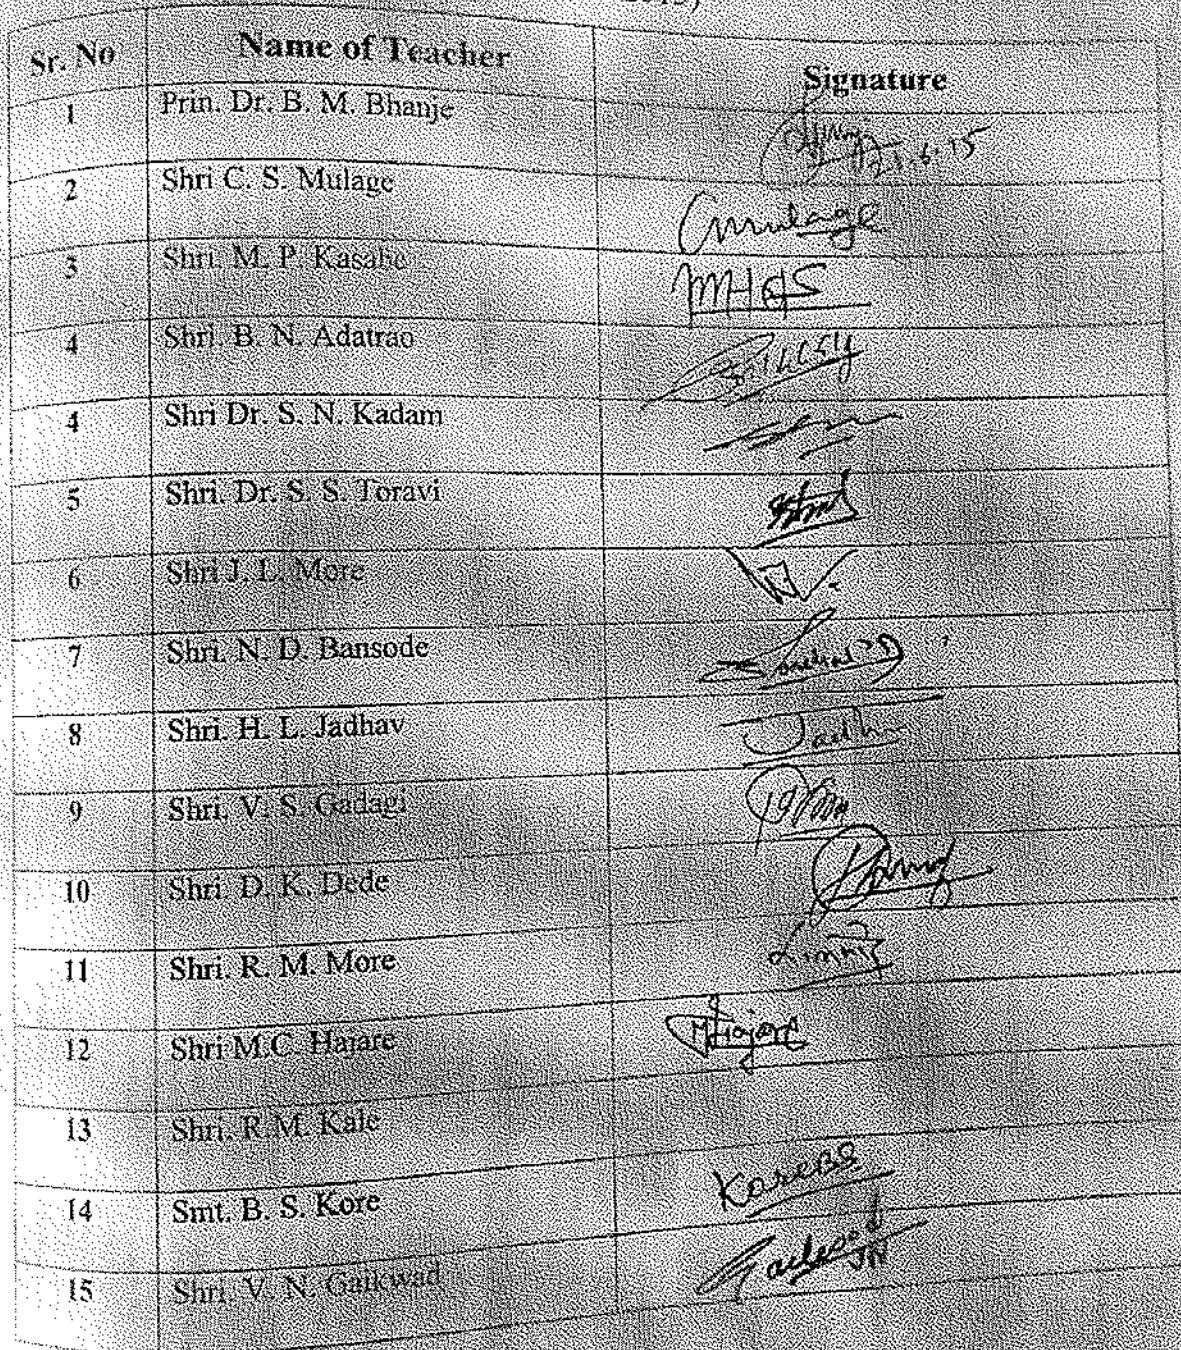 Sr. No Name of Teacher Signature
1 Prin. Dr. B. M. Bhanje 6.15
2 Shri C. S. Mulage Cmulage
3 Shri. M. P. Kasabe
4 Shri. B. N. Adatrao
4 Shri Dr. S. N. Kadam
5 Shri. Dr. S. S. Toravi
6 Shri J. L. More
7 Shri. N. D. Bansode
8 Shri. H. L. Jadhav Jadhav
9 Shri. V. S. Gadagi
10 Shri. D. K. Dede
11 Shri. R. M. More
12 Shri M.C. Hajare MHajare
13 Shri. R.M. Kale
14 Smt. B. S. Kore KoreBS
15 Shri. V. N. Gaikwad